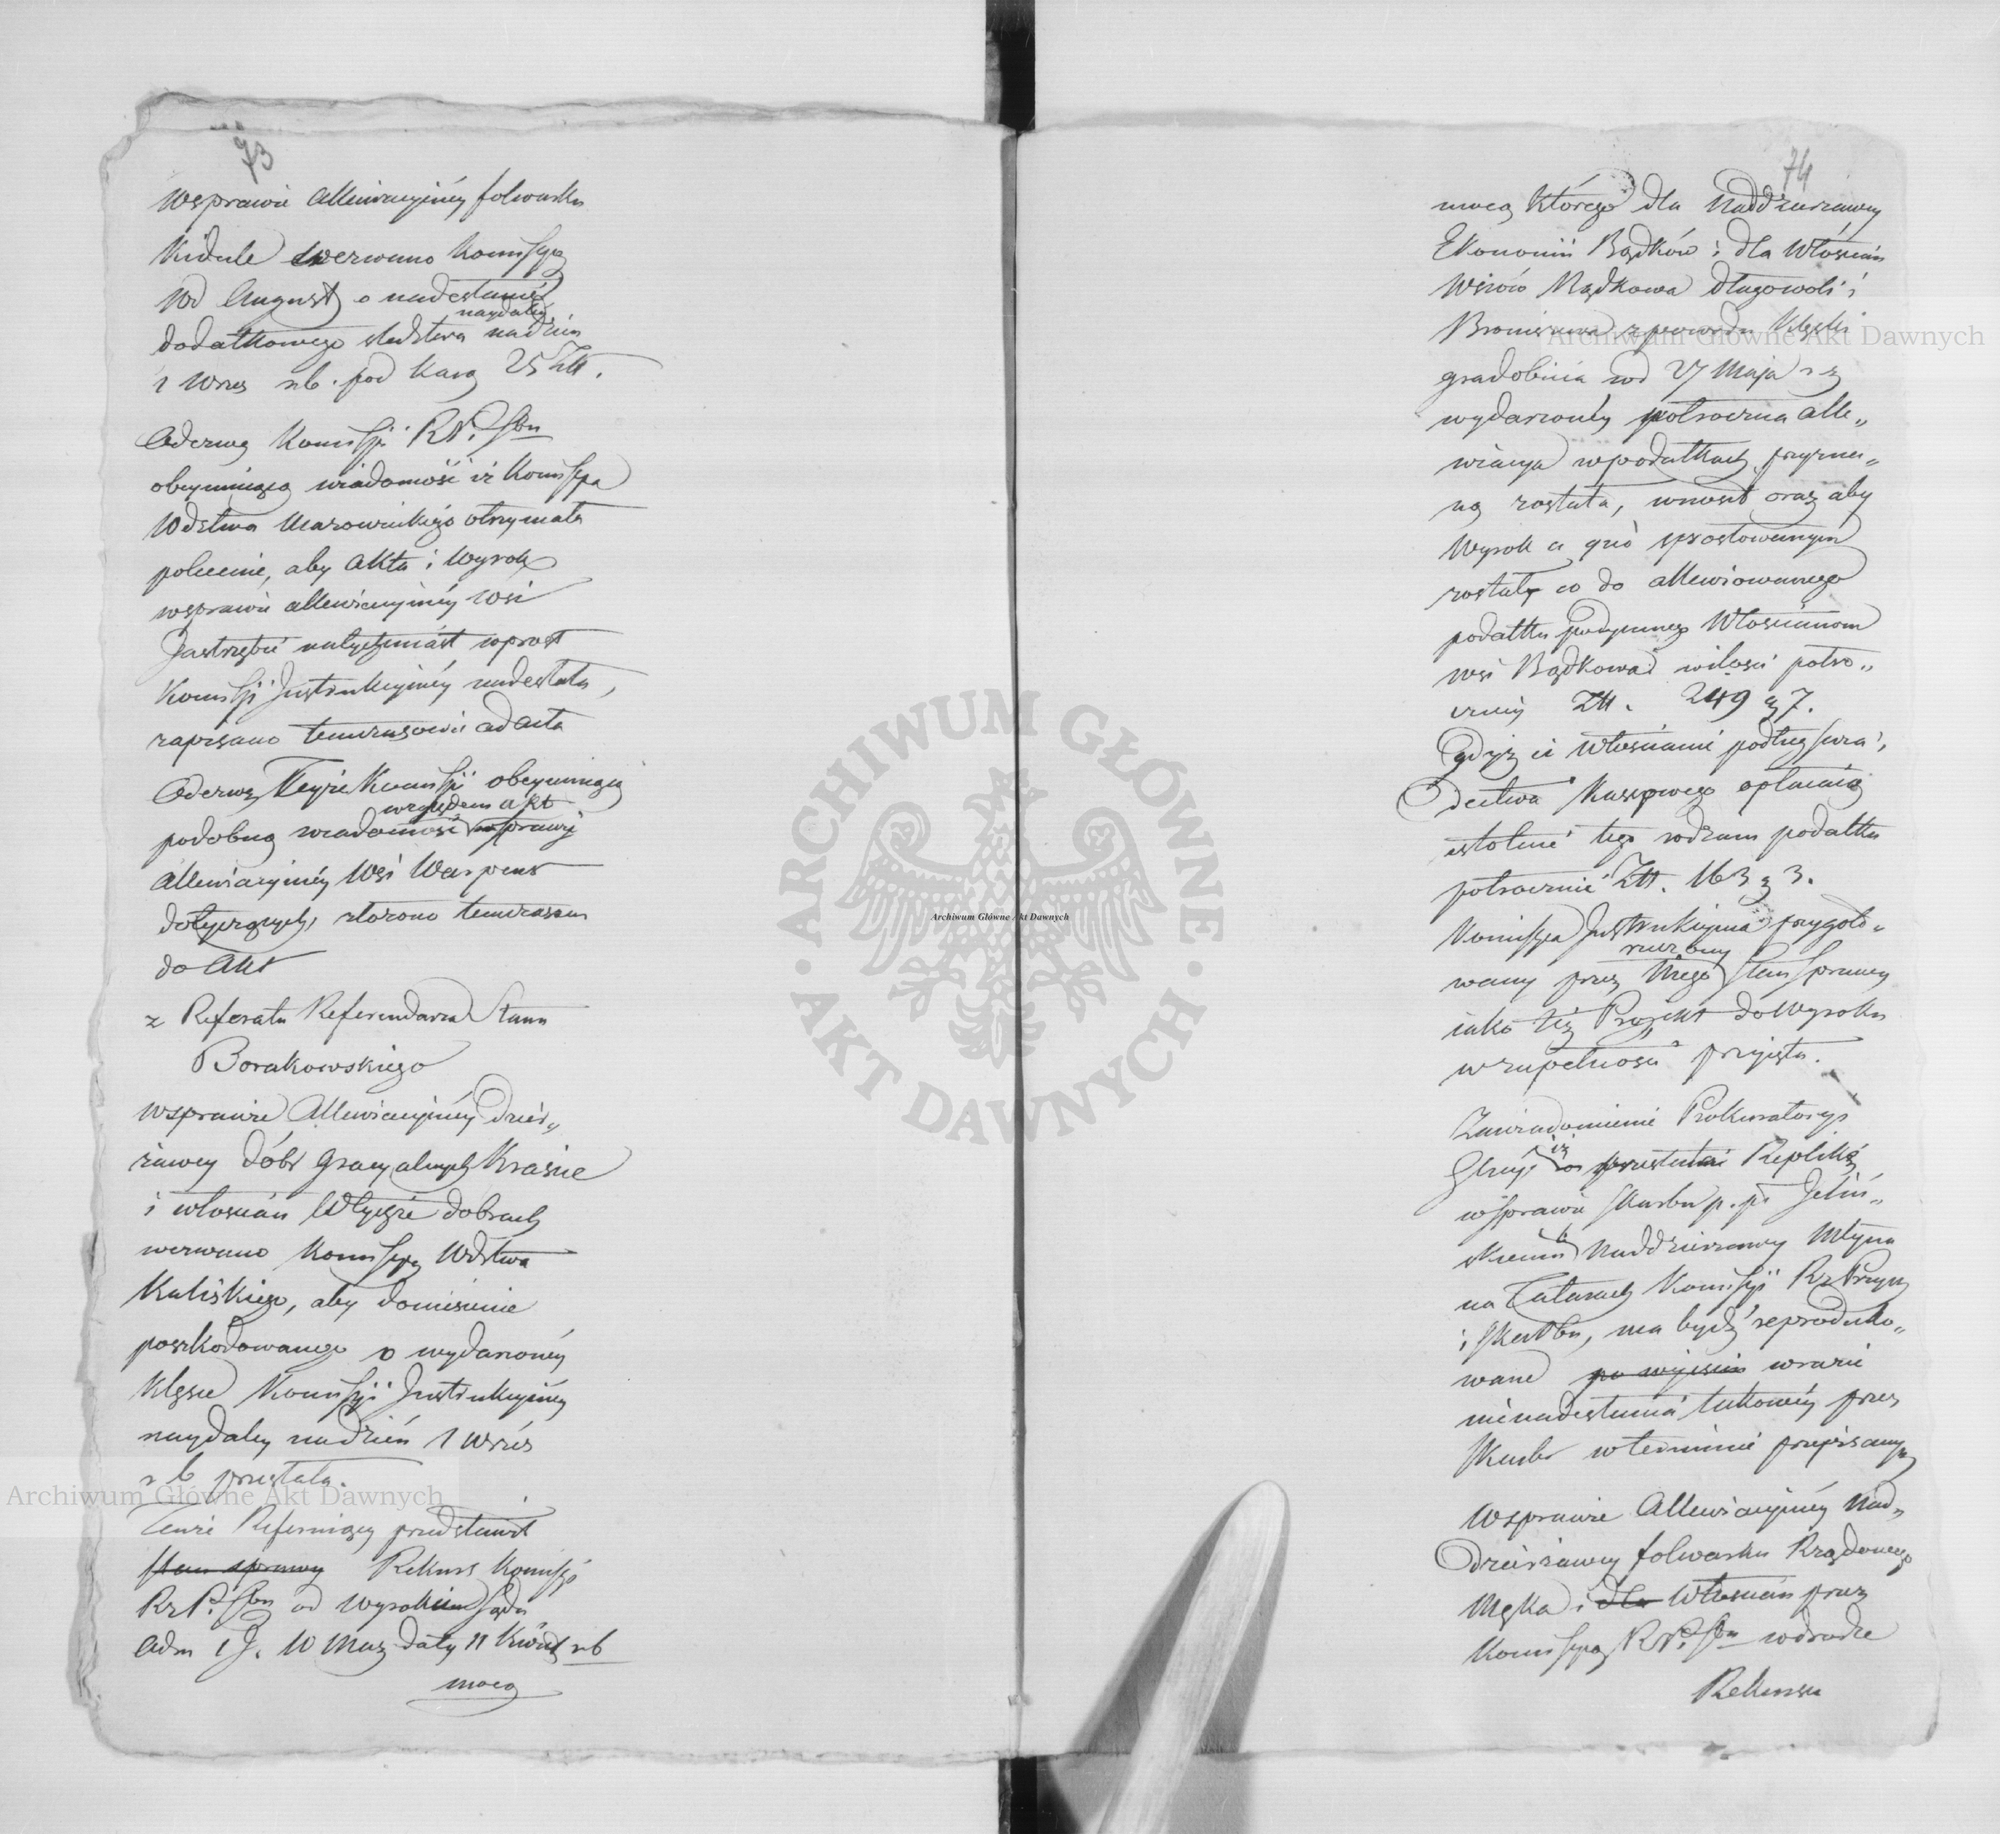 73
wsprawie allewiacyjnéy folwarku
Kidule wezwano Kommissyą
Wd August o nadesłanie
naydaléy
dodatkowego śledztwa nadzień
1 Wrzes r.b. pod karą 25 Zł.
Odezwę Kommissyi R.P. i Sbu
obeymuiącą wiadomość iż Kommissya
Wdztwa Mazowieckiego otrzymała
polecenie, aby Akta i Wyrok
wsprawie allewiacyjnéy wsi
Jastrzębie natychmiast wprost
Kommissyi Instrukcyjnéy nadesłała,
zapisano temczasowie ad acta
Odezwę Teyże Kommissyi obeymuiącą
względem akt
podobną wiadomość sprawy
allewiacyjnéy Wsi
dotyczących, złożono temczasem
do Akt
z Referatu Referendarza Stanu
Borakowskiego
wsprawie Allewiacyjnéy Dzier„
żawcy dóbr Kraśne
i włościan Wtychże dobrach
wezwano Kommissyą Wdztwa
Kaliskiego, aby doniesienie
poszkodowanego o wydarzonéy
klęsce Kommissyi Instrukcyjnéy
naydaléy nadzień 1 wrześ
r b przesłała.
Tenże Referuiący przedstawił
stan sprawy Rekurs Kommissyi
Rz P. i Sbu od Wyroku Sądu
Adm i J. W Maz daty 11 Kwiet r b
mocą
74
mocą którego dla Naddzierzawcy
Ekonomii Bądków i dla Włościan
Wsiów Bądkowa Długowoli i
Broniszewa z powodu klęski
gradobicia wd 27 Maja
wydarzonéy półroczna alle„
wiacya wpodatkach przyzna„
ną została, wniósł oraz aby
Wyrok a quo sprostowanym
został co do allewiowanego
podatku podymnego Włościanom
wsi Bądkowa wilości półro„
cznéy Zł. 249 g 7.
Gdyż ci Włościanie podług świa„
dectwa Kassowego opłacaią
istotnie tego rodzaiu podatku
półrocznie Zł. 163 g 3.
Kommissya Instrukcyjna przygoto„
rzeczony
wany przez Niego Stan Sprawy
iako też Projekt do Wyroku
wzupełności przyjęła.
Zawiadomienie Prokuratoryi
Glnéy iż przesłała Replikę
wsprawie Skarbu p. ps Jeliń„
skiemu Naddzierzawcy Młyna
na Tatarach Kommissyi Rz Przych
i Skarbu, ma bydź reproduko„
wane po wyjściu wrazie
nienadesłania takowéy przez
Skarb wterminie przepisanym
Wsprawie Allewiacyjnéy Nad„
dzierżawcy folwarku Rządowego
Męka i dla Włościan przez
Kommissyą R P. i Sbu wdrodze
Rekursu
ARCHIWUM GŁÓWNE · AKT DAWNYCH ·
Archiwum Główne Akt Dawnych
Archiwum Główne Akt Dawnych
Archiwum Główne Akt Dawnych